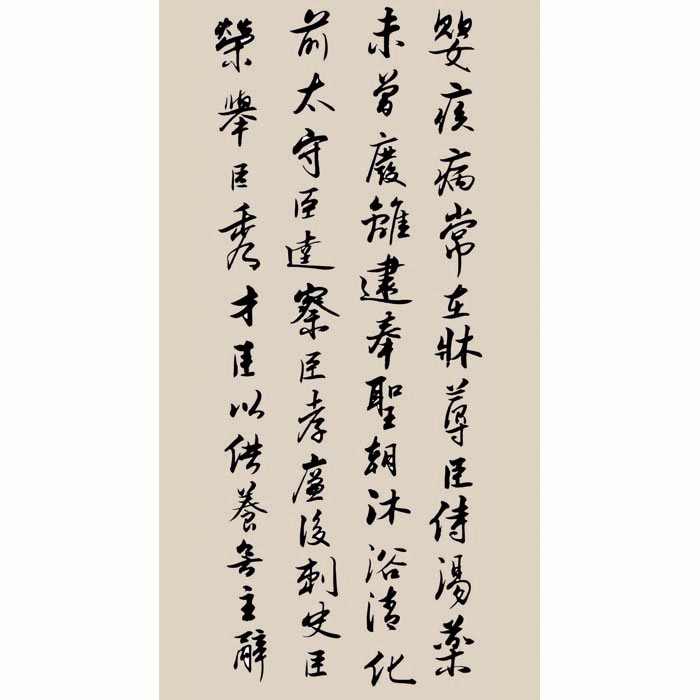 嬰疾病常在牀蓐臣侍湯藥
未曾廢離逮奉聖朝沐浴清化
前太守臣逵察臣孝廉後刺史臣
榮舉臣秀才臣以供養無主辭